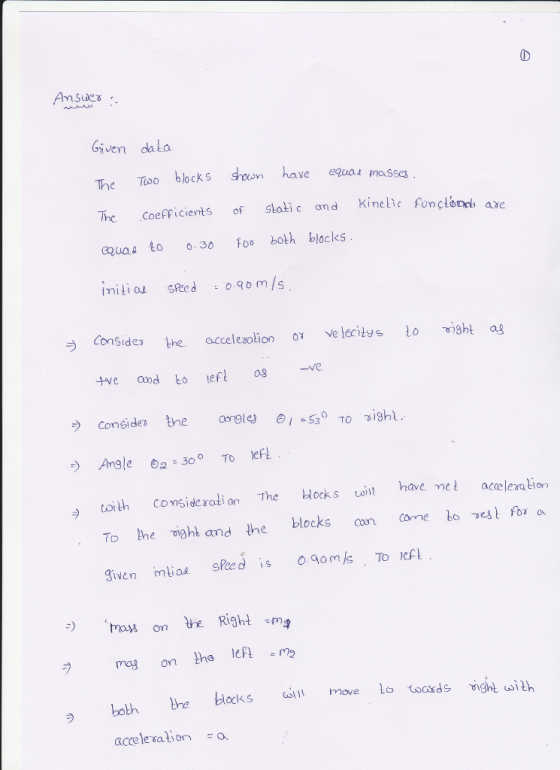 ①
Answer :-
Given data
The Two blocks shown have equal masses.
The coefficients of static and kinetic functiond are
equal to 0.30 For both blocks.
initial speed = 0.90 m/s.
⇒ Consider the acceleration or velocitys to right as
+ve and to left as -ve
⇒ Consider the angles θ1 = 53° TO right.
⇒ Angle θ2 = 30° TO left.
⇒ with consideration The blocks will have net acceleration
To the right and the blocks can come to rest For a
given intial speed is 0.90 m/s. To left.
⇒ mass on the Right = m1
⇒ mas on the left = m2
⇒ both the blocks will move to wards right with
acceleration = a